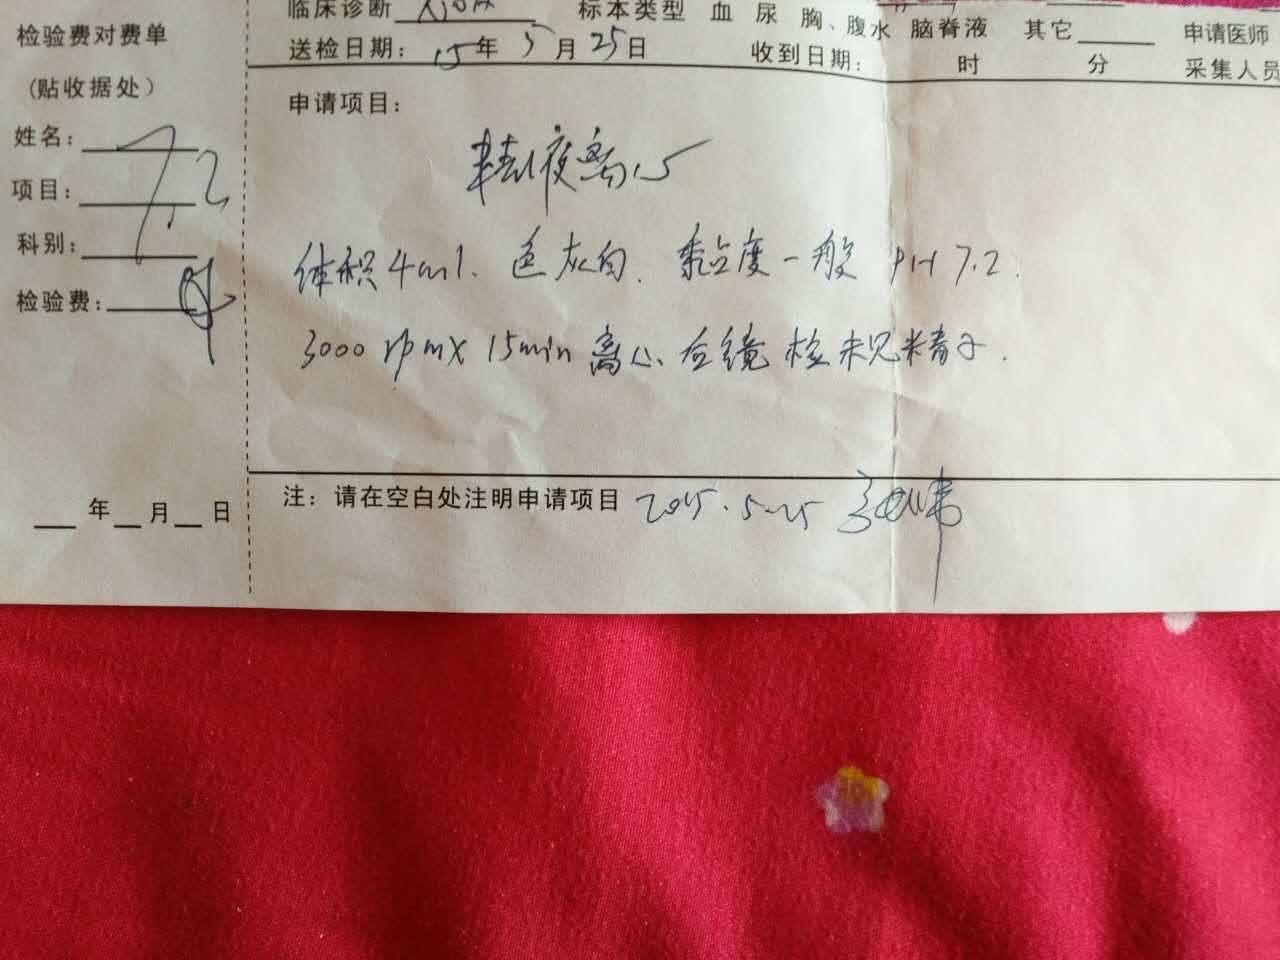 检验费对费单
(贴收据处)
姓名:
项目:
科别:
检验费:
年 月 日
临床诊断 标本类型 血 尿 胸、腹水 脑脊液 其它 申请医师
送检日期: 15年 5月 25日 收到日期: 时 分 采集人员
申请项目:
精液离心
体积4ml. 色灰白. 黏度一般 PH 7.2.
3000rpm×15min 离心后镜检未见精子.
注: 请在空白处注明申请项目 2015.5.25